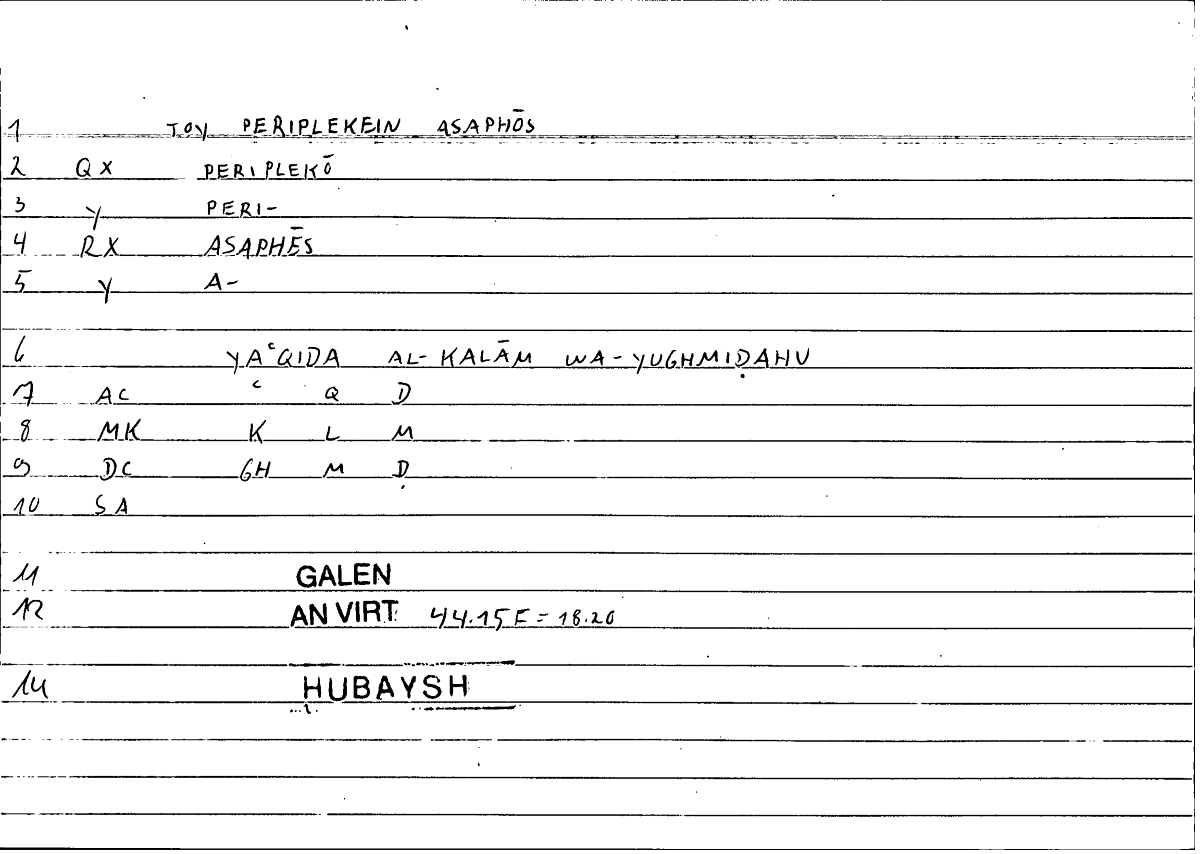 1 TOY PERIPLEKEIN ASAPHŌS
2 QX PERIPLEKŌ
3 Y PERI-
4 RX ASAPHĒS
5 Y A-
6 YAʿQIDA AL-KALĀM WA-YUGHMIḌAHU
7 AC ʿ Q D
8 MK K L M
9 DC GH M Ḍ
10 SA
11 GALEN
12 AN VIRT 44.15 F = 18.20
14 HUBAYSH